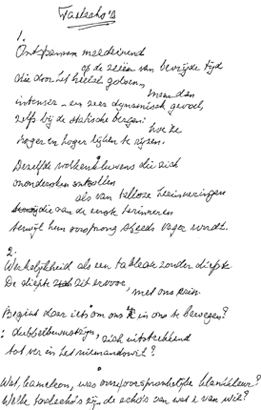 Tasteecho's
1.
Ontspannen meedeinend
op de zeeën van bevrijde tijd
die door het heelal golven,
meer dan
intenser - en zeer dynamisch gevoel,
zelfs bij de statische bergen:
hoe ze
hoger en hoger lijken te rijzen.
Dezelfde wolkenkluwens die zich
ononderbroken ontrollen
als van talloze herinneringen
die aan de eerste herinneren
terwijl hun oorsprong steeds vager wordt.
2.
Werkelijkheid als een tableau zonder diepte
De diepte zit ervoor,
met ons erin.
Begint daar iets om ons in ons te bewegen?
: dubbelbewustzijn, zich uitstrekkend
tot ver in het niemandswil?
Wat, kameleon, was onze oorspronkelijke blanke kleur?
Welke echo's zijn de echo's van wat er van wil?